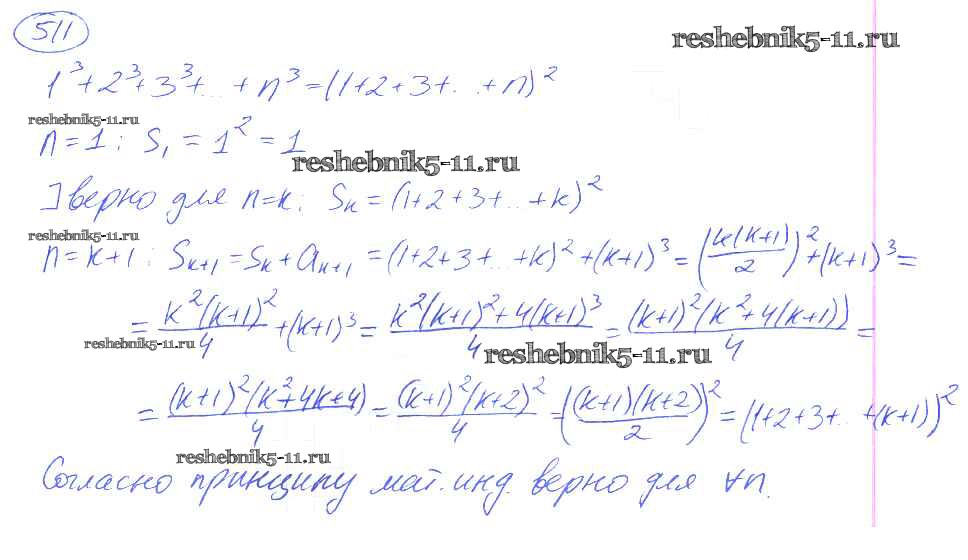 511
reshebnik5-11.ru
1³+2³+3³+...+n³=(1+2+3+...+n)²
reshebnik5-11.ru
n=1: S₁=1²=1
reshebnik5-11.ru
] верно для n=k: Sₖ=(1+2+3+...+k)²
reshebnik5-11.ru
n=k+1: Sₖ₊₁=Sₖ+aₖ₊₁=(1+2+3+...+k)²+(k+1)³=(k(k+1)/2)²+(k+1)³=
=k²(k+1)²/4+(k+1)³=(k²(k+1)²+4(k+1)³)/4=(k+1)²(k²+4(k+1))/4=
reshebnik5-11.ru
reshebnik5-11.ru
=(k+1)²(k²+4k+4)/4=(k+1)²(k+2)²/4=((k+1)(k+2)/2)²=(1+2+3+...+(k+1))²
reshebnik5-11.ru
Согласно принципу мат. инд. верно для ∀n.